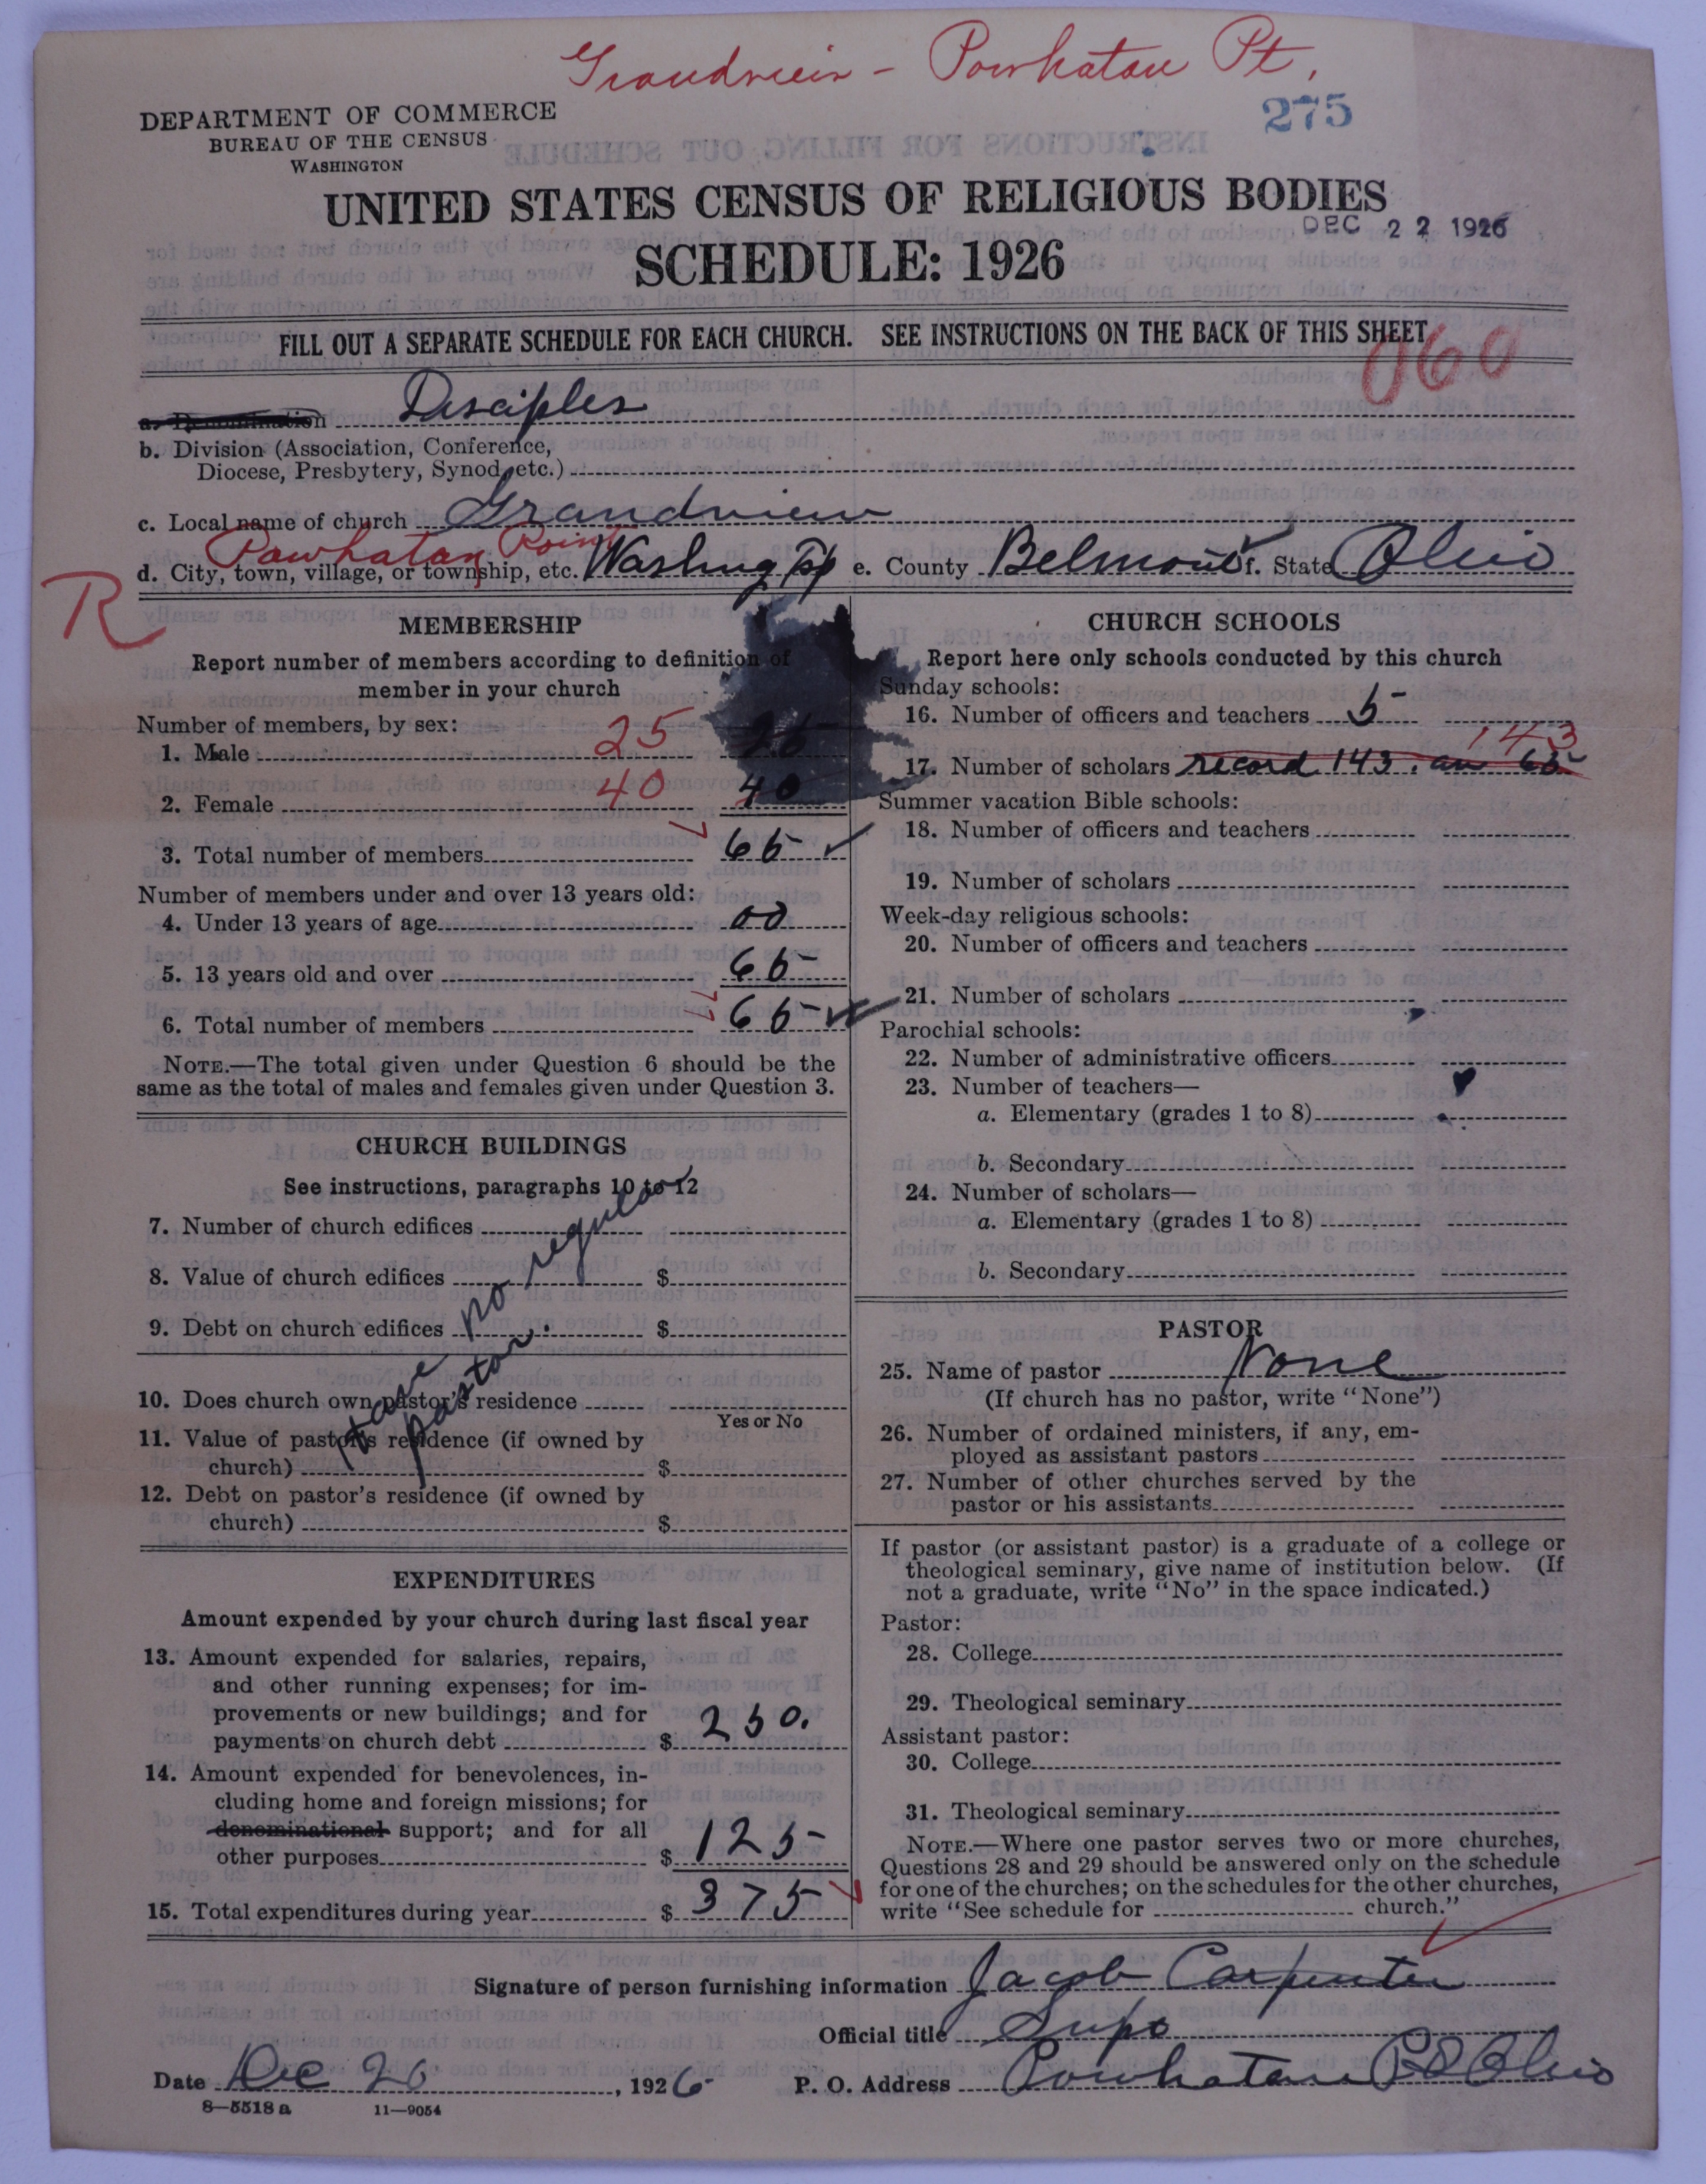 Grandview - Powhatan Pt.
275
DEPARTMENT OF COMMERCE
BUREAU OF THE CENSUS
WASHINGTON
UNITED STATES CENSUS OF RELIGIOUS BODIES
DEC 22 1926
SCHEDULE: 1926
FILL OUT A SEPARATE SCHEDULE FOR EACH CHURCH. SEE INSTRUCTIONS ON THE BACK OF THIS SHEET
060
a. Denomination Disciples
b. Division (Association, Conference,
Diocese, Presbytery, Synod, etc.)
c. Local name of church Grandview
Powhatan Point
d. City, town, village, or township, etc. Washing Tp e. County Belmont f. State Ohio
R
MEMBERSHIP
Report number of members according to definition of
member in your church
Number of members, by sex:
1. Male 25 25
2. Female 40 40
3. Total number of members 65
Number of members under and over 13 years old:
4. Under 13 years of age 00
5. 13 years old and over 65
6. Total number of members 65
NOTE.—The total given under Question 6 should be the
same as the total of males and females given under Question 3.
CHURCH BUILDINGS
See instructions, paragraphs 10 to 12
7. Number of church edifices
8. Value of church edifices $
9. Debt on church edifices $
have no regular
pastor.
10. Does church own pastor's residence
Yes or No
11. Value of pastor's residence (if owned by
church) $
12. Debt on pastor's residence (if owned by
church) $
EXPENDITURES
Amount expended by your church during last fiscal year
13. Amount expended for salaries, repairs,
and other running expenses; for im-
provements or new buildings; and for
payments on church debt $ 250.
14. Amount expended for benevolences, in-
cluding home and foreign missions; for
denominational support; and for all
other purposes $ 125
15. Total expenditures during year $ 375
CHURCH SCHOOLS
Report here only schools conducted by this church
Sunday schools:
16. Number of officers and teachers 5
143
17. Number of scholars record 143. av 65
Summer vacation Bible schools:
18. Number of officers and teachers
19. Number of scholars
Week-day religious schools:
20. Number of officers and teachers
21. Number of scholars
Parochial schools:
22. Number of administrative officers
23. Number of teachers—
a. Elementary (grades 1 to 8)
b. Secondary
24. Number of scholars—
a. Elementary (grades 1 to 8)
b. Secondary
PASTOR
25. Name of pastor None
(If church has no pastor, write "None")
26. Number of ordained ministers, if any, em-
ployed as assistant pastors
27. Number of other churches served by the
pastor or his assistants
If pastor (or assistant pastor) is a graduate of a college or
theological seminary, give name of institution below. (If
not a graduate, write "No" in the space indicated.)
Pastor:
28. College
29. Theological seminary
Assistant pastor:
30. College
31. Theological seminary
NOTE.—Where one pastor serves two or more churches,
Questions 28 and 29 should be answered only on the schedule
for one of the churches; on the schedules for the other churches,
write "See schedule for church."
Signature of person furnishing information Jacob Carpenter
Official title Supt
Date Dec 20, 1926 P. O. Address Powhatan Pt Ohio
8—5518 a 11—9054